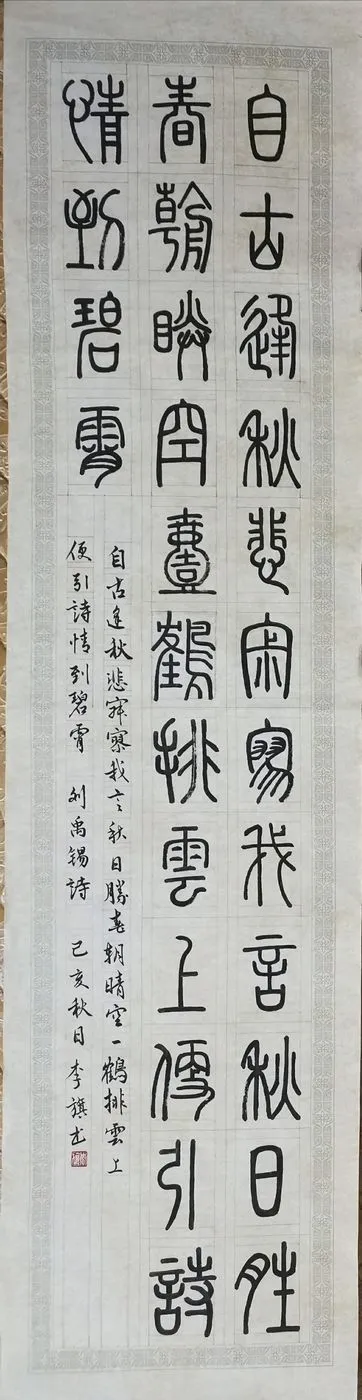 自古逢秋悲寂寥我言秋日胜
春朝晴空壹鶴排雲上便引詩
情到碧霄
自古逢秋悲寂寥我言秋日勝春朝晴空一鶴排雲上
便引詩情到碧霄 刘禹錫詩 己亥秋日李旗书